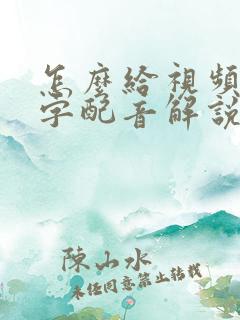 怎麼給視頻
字配音解說
陳山水
未經同意禁止轉載